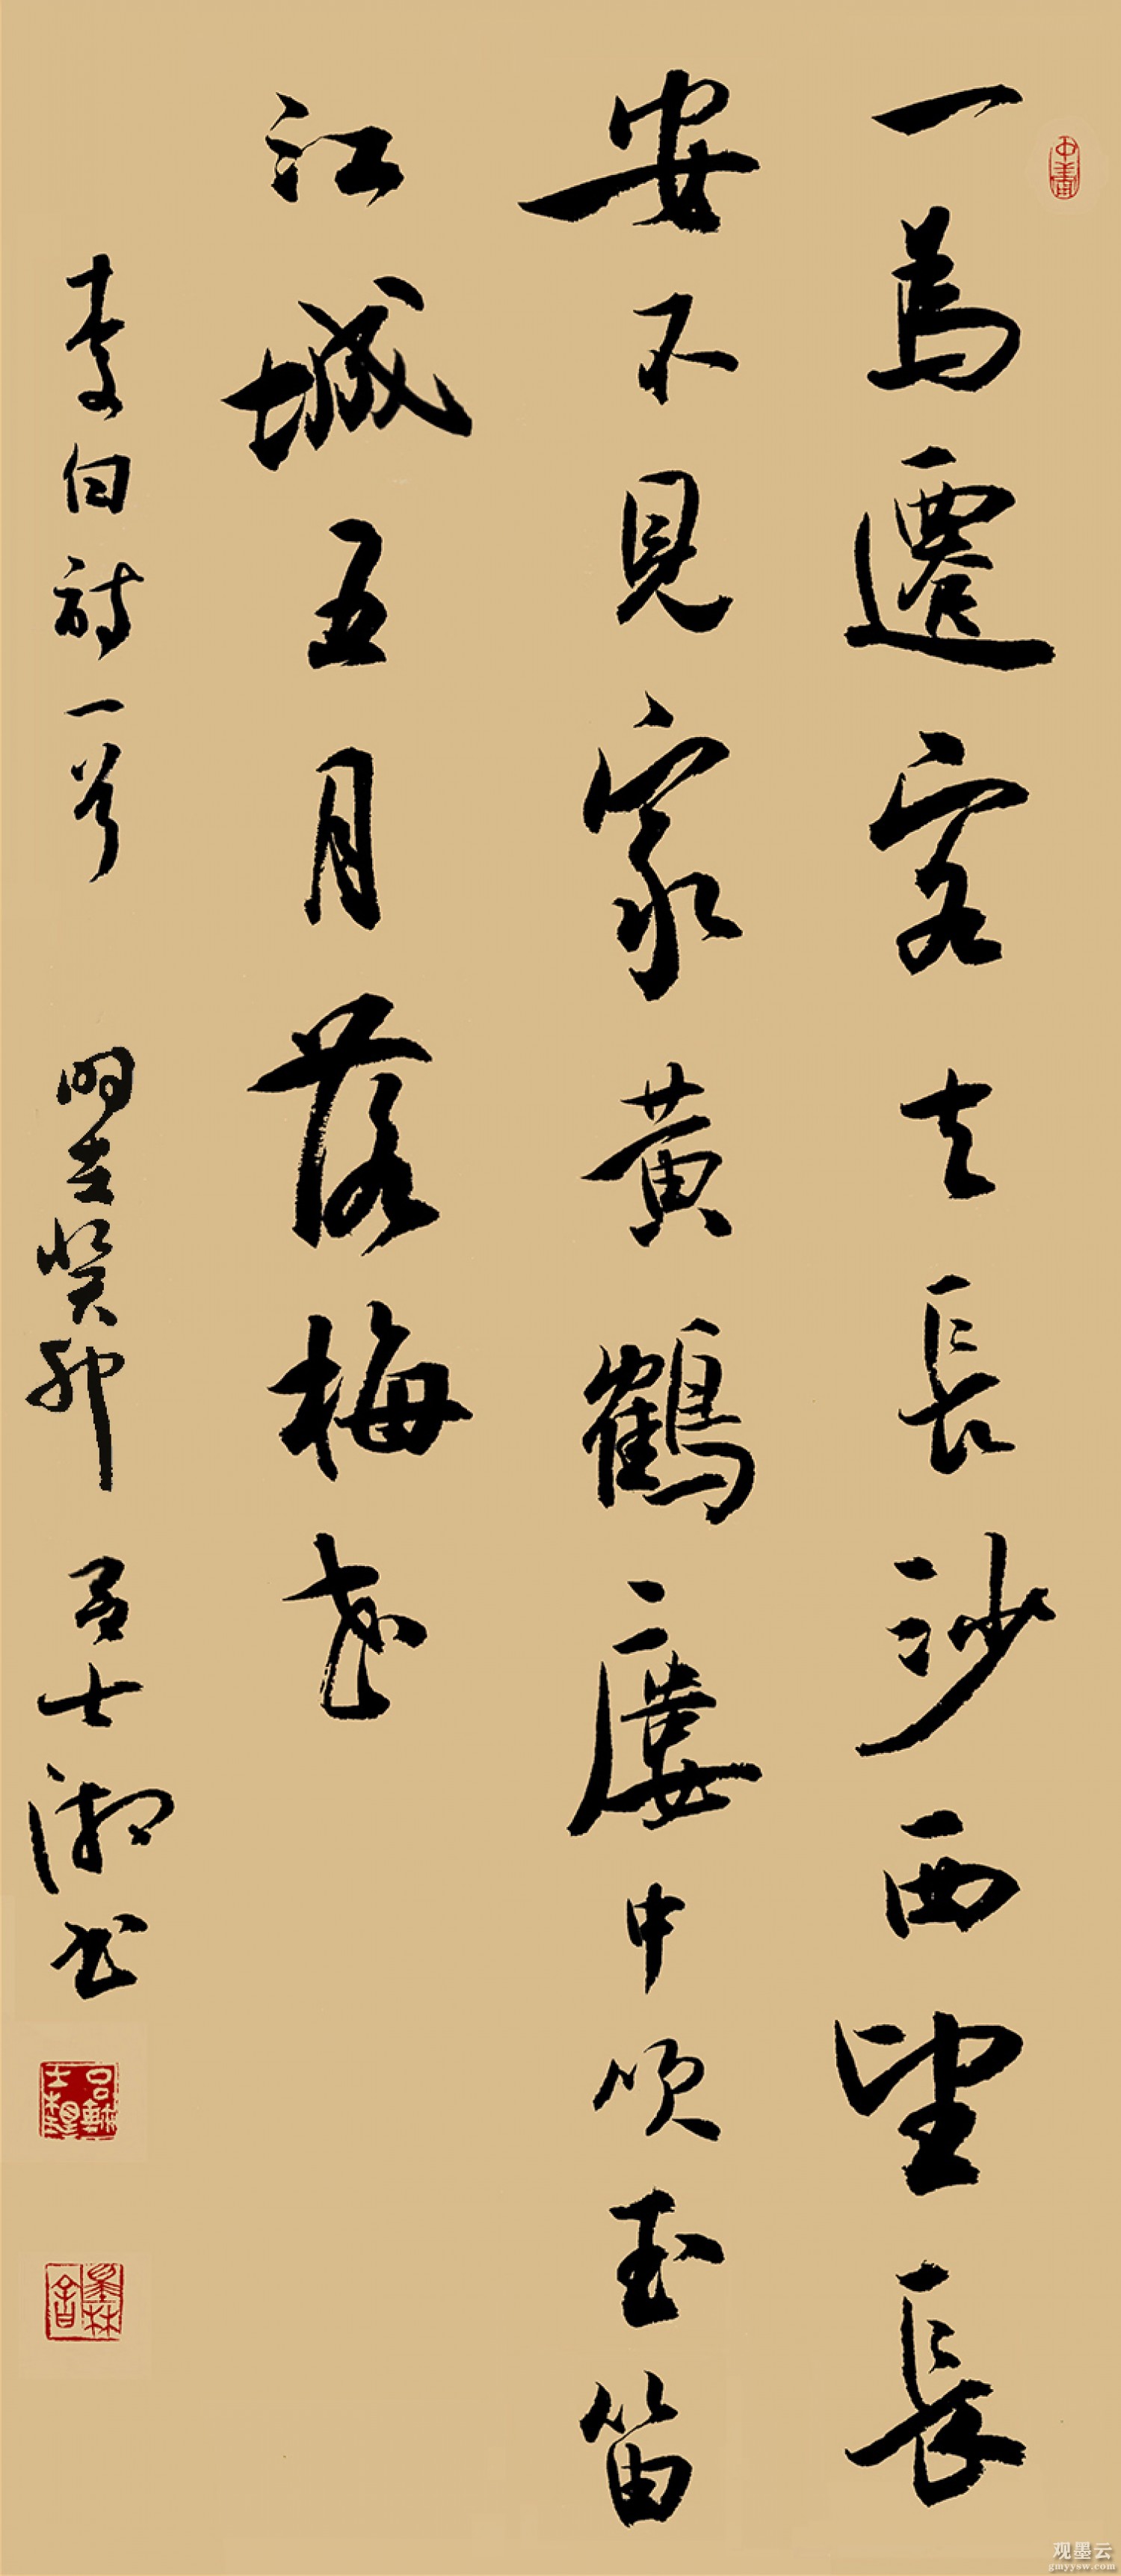 一為遷客去長沙西望長
安不見家黃鶴廔中吹玉笛
江城五月落梅花
李白詩一首 癸卯 呂士 书
观墨云
gmyysw.com